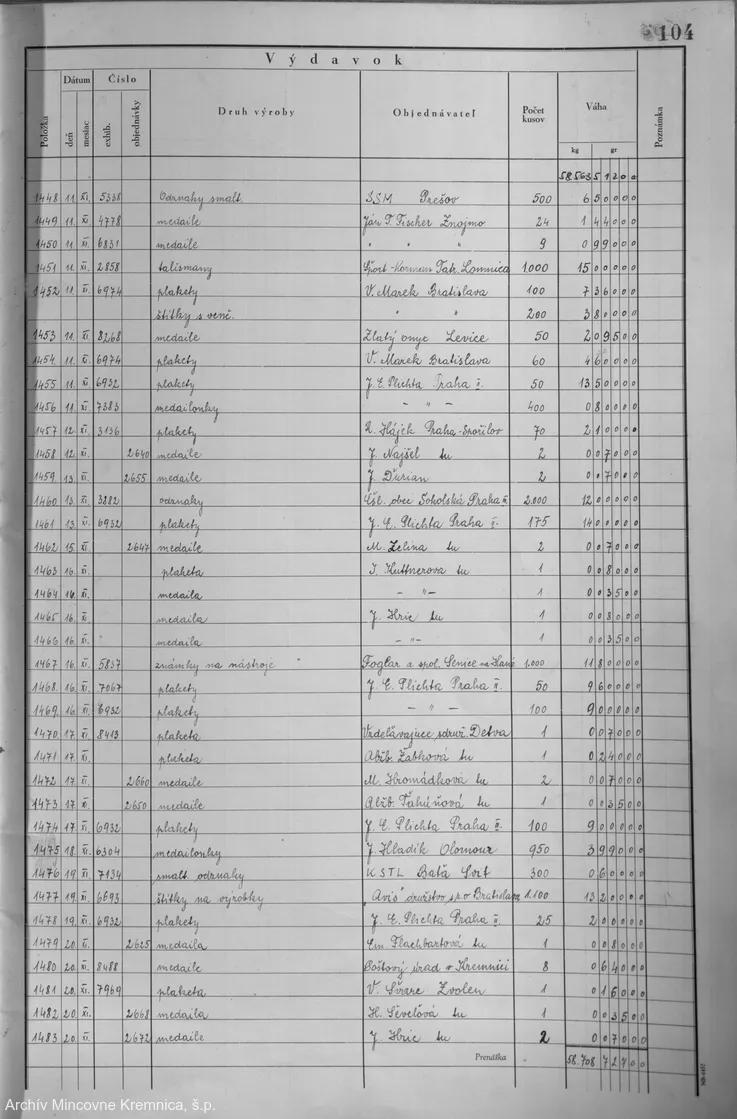 104
Výdavok
Položka Dátum Číslo Druh výroby Objednávateľ Počet kusov Váha Poznámka
deň mesiac exhib. objednávky kg gr
58.563 5 1 2 0 0
1448 11. XI. 5338 Odznaky smalt. SSM Prešov 500 6 5 0 0 0 0
1449 11. XI. 4778 medaile Ján T. Fischer Znojmo 24 1 4 4 0 0 0
1450 11. XI. 6831 medaile " " " 9 0 9 9 0 0 0
1451 11. XI. 2858 talismany Šport - Tatr. Lomnica 1.000 15 0 0 0 0 0
1452 11. XI. 6974 plakety V. Marek Bratislava 100 7 3 6 0 0 0
štítky s venč. " " 200 3 8 0 0 0 0
1453 11. XI. 8268 medaile Zlatý onyx Levice 50 2 0 9 5 0 0
1454 11. XI. 6974 plakety V. Marek Bratislava 60 4 6 0 0 0 0
1455 11. XI. 6932 plakety J. E. Plichta Praha II. 50 13 5 0 0 0 0
1456 11. XI. 7383 medailonky – " – 400 0 8 0 0 0 0
1457 12. XI. 3136 plakety R. Hájek Praha-Spořilov 70 2 1 0 0 0 0
1458 12. XI. 2640 medaile J. Najšel tu 2 0 0 7 0 0 0
1459 13. XI. 2655 medaile J. Ďurian 2 0 0 7 0 0 0
1460 13. XI. 3282 odznaky Čsl. obec Sokolská Praha II. 2.000 12 0 0 0 0 0
1461 13. XI. 6932 plakety J. E. Plichta Praha II. 175 14 0 0 0 0 0
1462 15. XI. 2647 medaile M. Zelina tu 2 0 0 7 0 0 0
1463 16. XI. plaketa I. Huttnerova tu 1 0 0 8 0 0 0
1464 16. XI. medaila – " – 1 0 0 3 5 0 0
1465 16. XI. medaila J. Hric tu 1 0 0 8 0 0 0
1466 16. XI. medaila – " – 1 0 0 3 5 0 0
1467 16. XI. 5837 známky na nástroje Foglar a spol. Senice na Hané 1.000 11 8 0 0 0 0
1468 16. XI. 7067 plakety J. E. Plichta Praha II. 50 9 6 0 0 0 0
1469 16. XI. 6932 plakety – " – 100 9 0 0 0 0 0
1470 17. XI. 8413 plaketa Vzdelávajúce združ. Detva 1 0 0 7 0 0 0
1471 17. XI. plaketa Alžb. Žabková tu 1 0 2 4 0 0 0
1472 17. XI. 2660 medaile M. Hromádková tu 2 0 0 7 0 0 0
1473 17. XI. 2650 medaile Alžb. Ťahúňová tu 1 0 0 3 5 0 0
1474 17. XI. 6932 plakety J. E. Plichta Praha II. 100 9 0 0 0 0 0
1475 18. XI. 6304 medailonky J. Hladik Olomouc 950 3 9 9 0 0 0
1476 19. XI. 7134 smalt. odznaky KSTL Batà Svit 300 0 6 0 0 0 0
1477 19. XI. 6693 štítky na výrobky "Avis" družstvo sp. o Bratislava 1.100 13 2 0 0 0 0
1478 19. XI. 6932 plakety J. E. Plichta Praha II. 25 2 0 0 0 0 0
1479 20. XI. 2625 medaila Em. Flachbartová tu 1 0 0 8 0 0 0
1480 20. XI. 8488 medaile Poštový úrad v Kremnici 8 0 6 4 0 0 0
1481 20. XI. 7969 plaketa V. Zvolen 1 0 1 6 0 0 0
1482 20. XI. 2668 medaila H. Ševelová tu 1 0 0 3 5 0 0
1483 20. XI. 2672 medaile J. Hric tu 2 0 0 7 0 0 0
Prenáška 58.708 7 2 7 0 0
Archív Mincovne Kremnica, š.p.